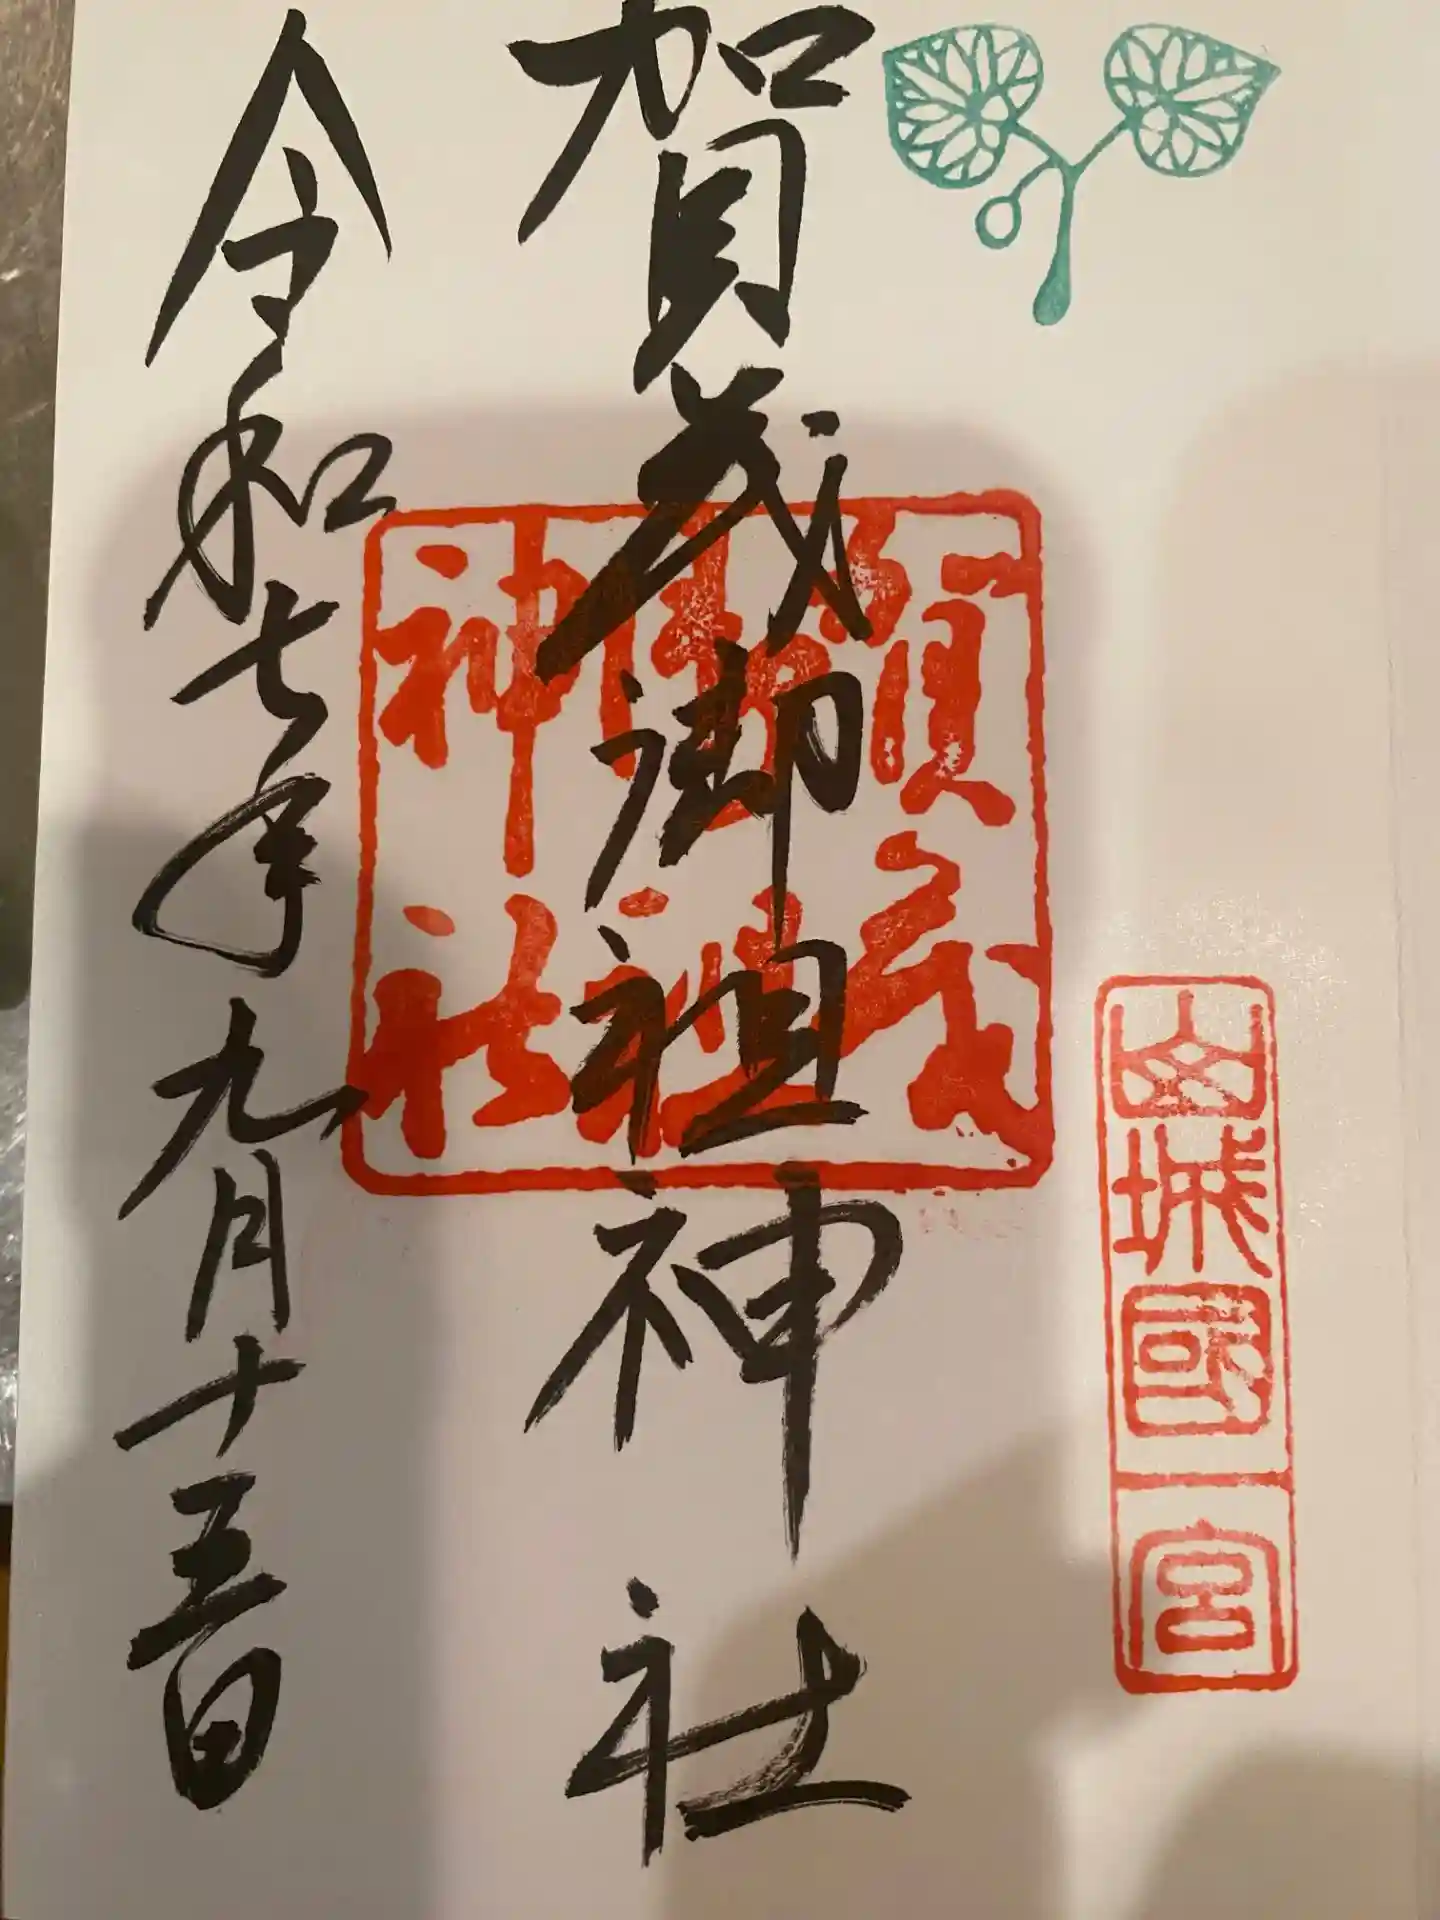 山城國一宮
賀茂御祖神社
賀茂御祖神社
令和七年九月十五日